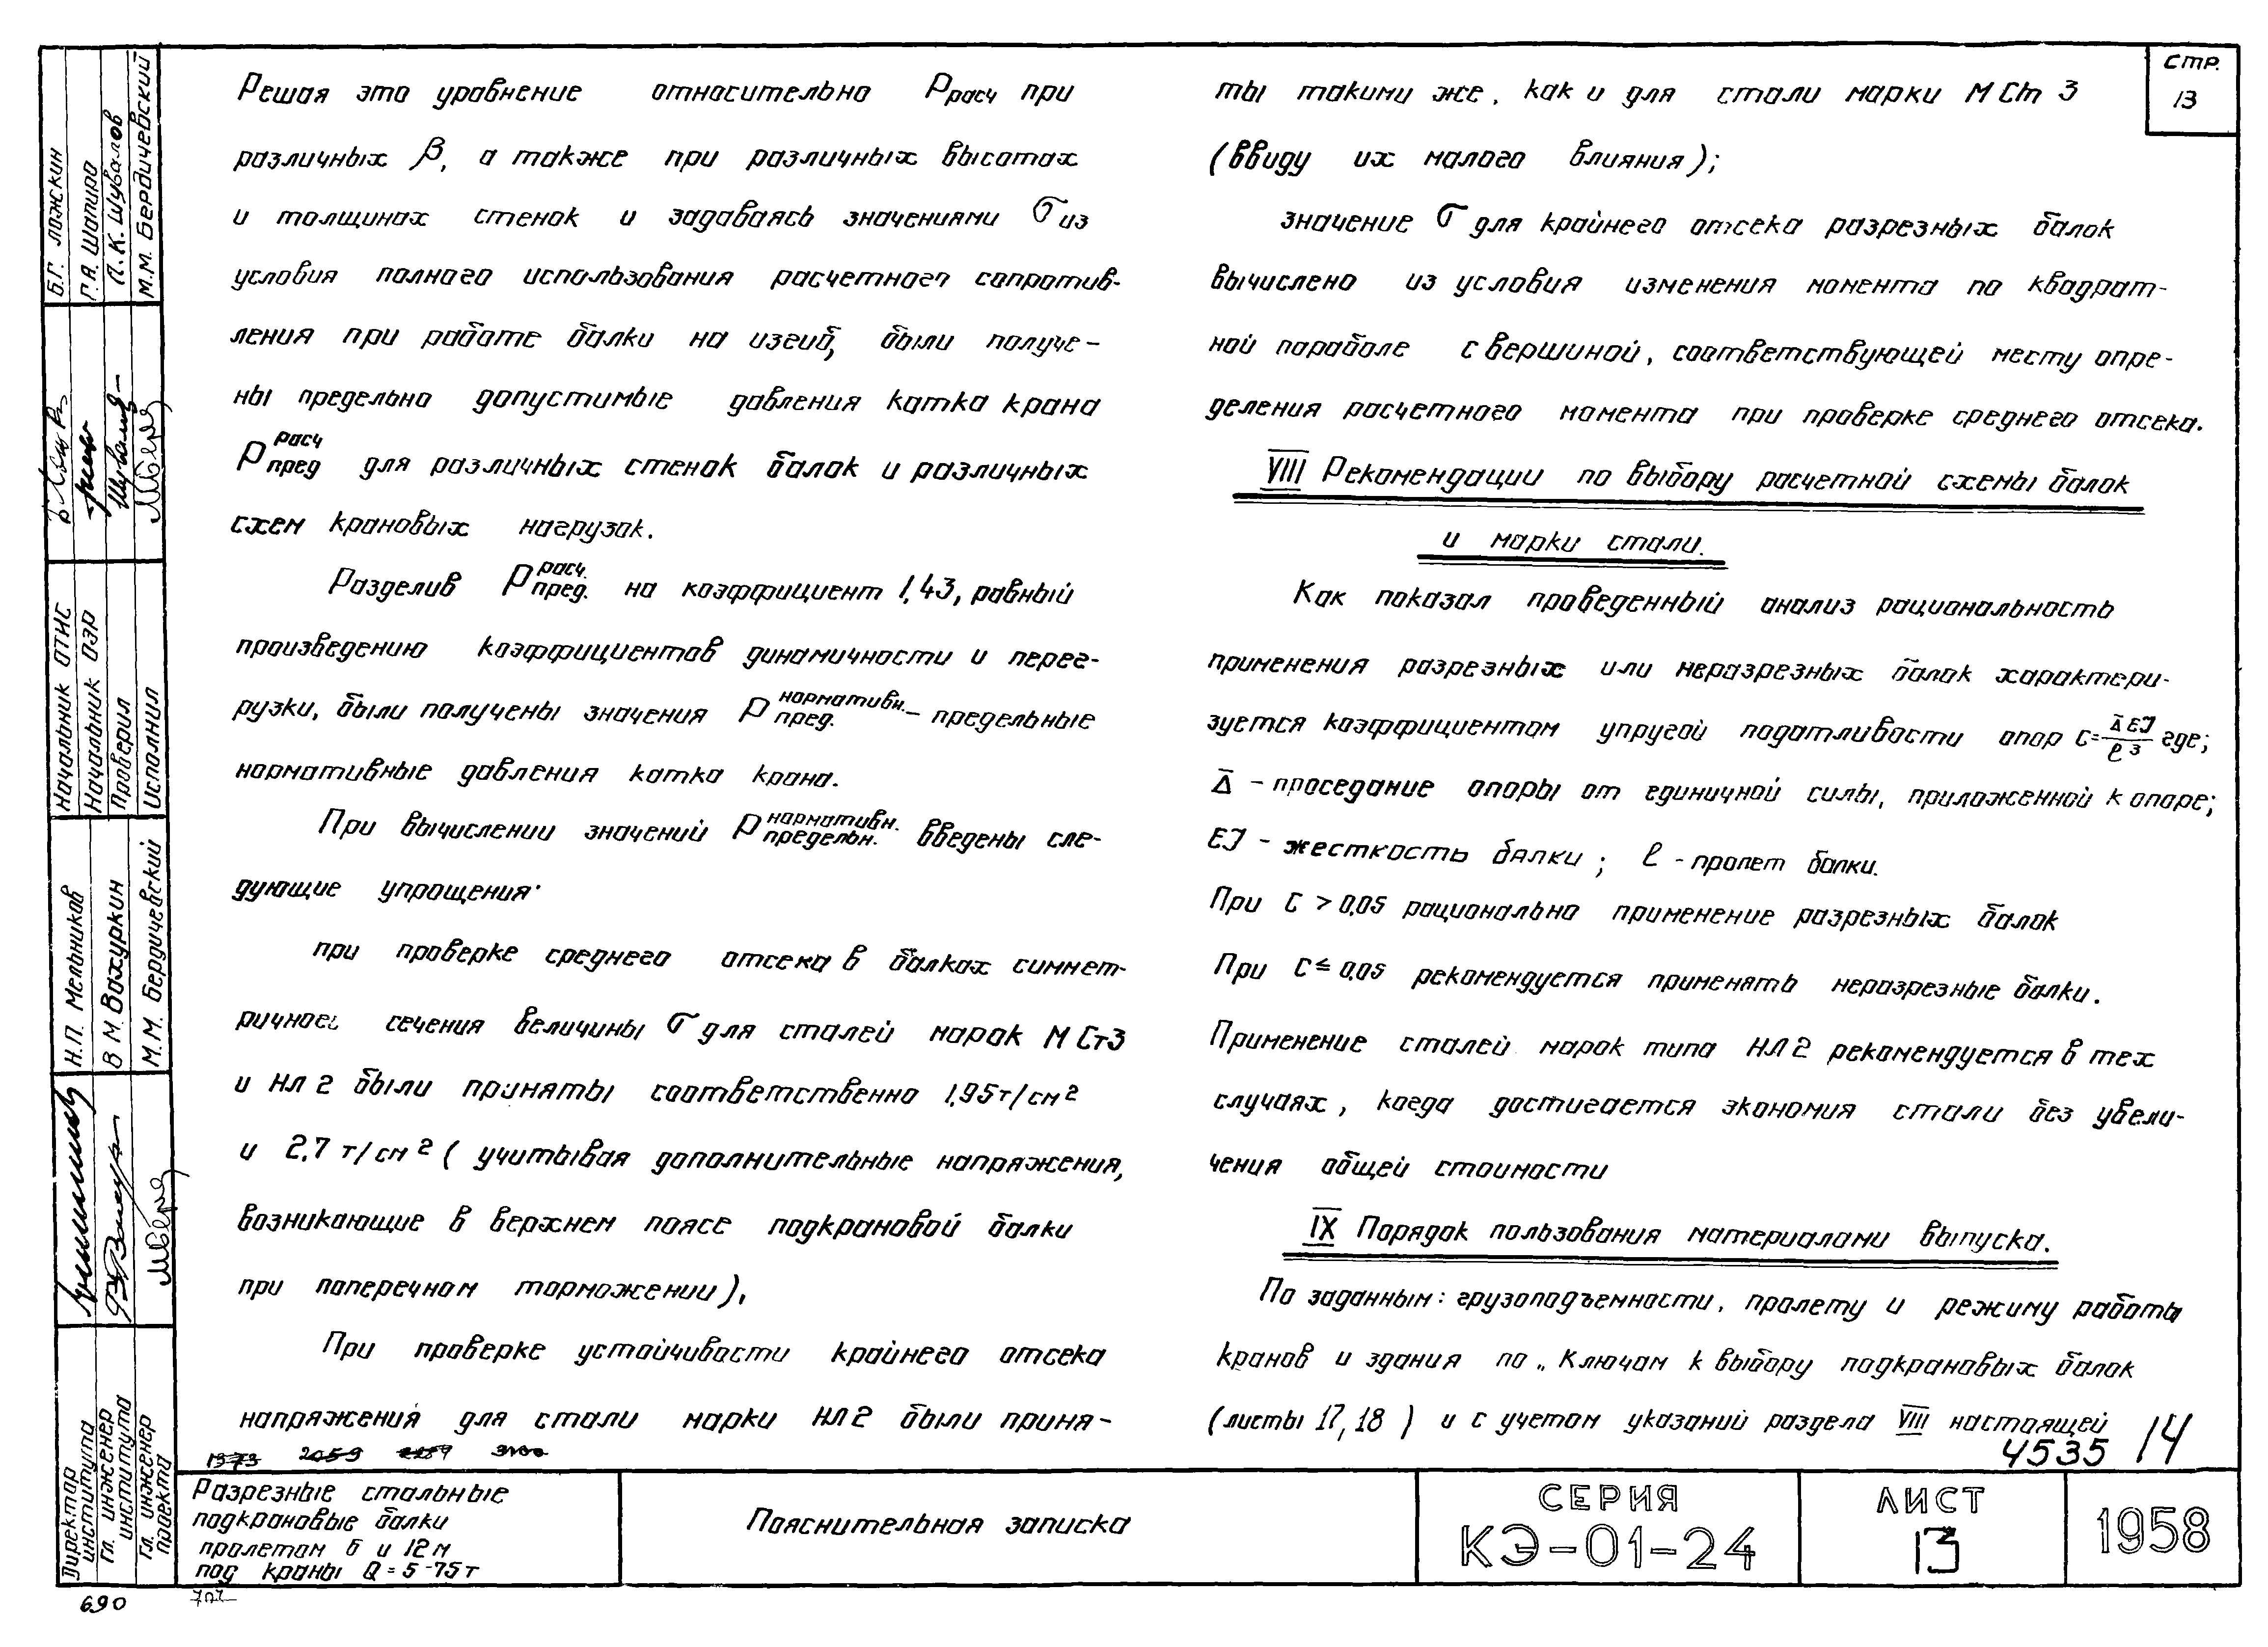 Стр.
13
Решая это уравнение относительно Pрасч при
различных β, а также при различных высотах
и толщинах стенок и задаваясь значениями σ из
условия полного использования расчетного сопротив-
ления при работе балки на изгиб, были получе-
ны предельно допустимые давления катка крана
Pпред^расч для различных стенок балок и различных
схем крановых нагрузок.
Разделив Pпред.^расч. на коэффициент 1,43, равный
произведению коэффициентов динамичности и перег-
рузки, были получены значения Pпред.^нормативн. – предельные
нормативные давления катка крана.
При вычислении значений Pпредельн.^нормативн. введены сле-
дующие упрощения:
при проверке среднего отсека в балках симмет-
ричного сечения величины σ для сталей марок М Ст3
и НЛ2 были приняты соответственно 1,95т/см²
и 2,7 т/см² (учитывая дополнительные напряжения,
возникающие в верхнем поясе подкрановой балки
при поперечном торможении).
При проверке устойчивости крайнего отсека
напряжения для стали марки НЛ2 были приня-
ты такими же, как и для стали марки М Ст 3
(ввиду их малого влияния);
значение σ для крайнего отсека разрезных балок
вычислено из условия изменения момента по квадрат-
ной параболе с вершиной, соответствующей месту опре-
деления расчетного момента при проверке среднего отсека.
VIII Рекомендации по выбору расчетной схемы балок
и марки стали.
Как показал проведенный анализ рациональность
применения разрезных или неразрезных балок характери-
зуется коэффициентом упругой податливости опор C=Δ̄EJ/ℓ³ где;
Δ̄ – проседание опоры от единичной силы, приложенной к опоре;
EJ – жесткость балки; ℓ – пролет балки.
При C > 0,05 рационально применение разрезных балок
При C ≤ 0,05 рекомендуется применять неразрезные балки.
Применение сталей марок типа НЛ2 рекомендуется в тех
случаях, когда достигается экономия стали без увели-
чения общей стоимости
IX Порядок пользования материалами выпуска.
По заданным: грузоподъемности, пролету и режиму работы
кранов и здания по „Ключам к выбору подкрановых балок
(листы 17, 18) и с учетом указаний раздела VIII настоящей
4535 14
1973 2059
Б.Г. Ложкин
Г.А. Шапиро
П.К. Шувалов
М.М. Бердичевский
Начальник ОТИС
Начальник ОЭР
Проверил
Исполнил
Н.П. Мельников
В.М. Вахуркин
М.М. Бердичевский
Директор института
Гл. инженер института
Гл. инженер проекта
Разрезные стальные
подкрановые балки
пролетом 6 и 12м
под краны Q = 5-75т
Пояснительная записка
СЕРИЯ
КЭ-01-24
ЛИСТ
13
1958
690
707